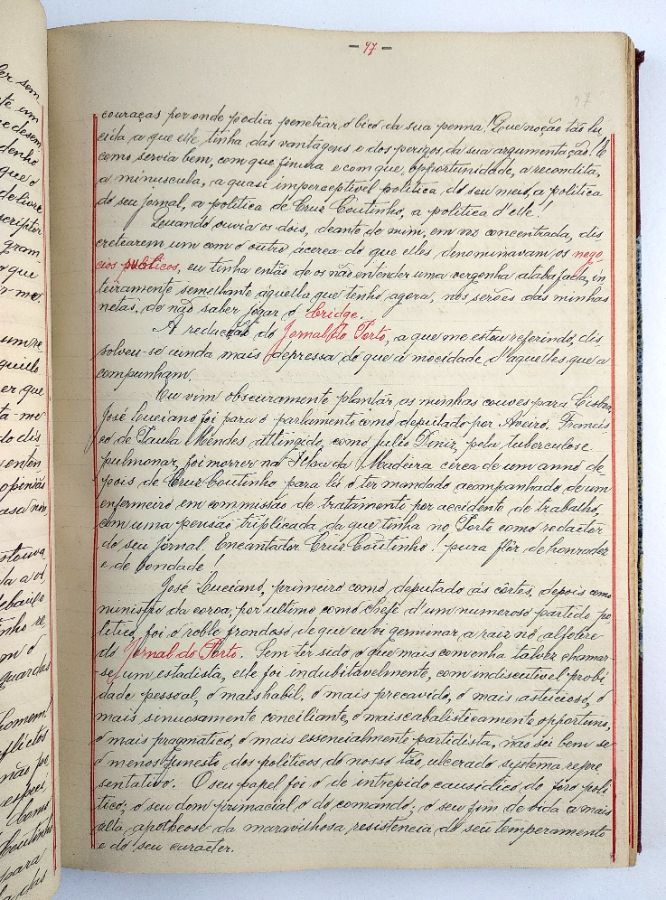 – 97 –
97
couraças por onde podia penetrar o bico da sua penna! Que noção tão lu
cida a que elle tinha das vantagens e dos perigos da sua argumentação! E
como servia bem, com que finura e com que opportunidade, a recondita,
a minuscula, a quasi imperceptivel politica do seu meio, a politica
do seu jornal, a politica de Cruz Coutinho, a politica d'elle!
Quando ouvia os dois, deante de mim, em voz concentrada, dis
cretearem um com o outro ácerca do que elles denominavam os nego
cios publicos, eu tinha então de os não entender uma vergonha atabafada, in
teiramente semelhante áquella que tenho agora, nos serões das minhas
netas, de não saber jogar o bridge.
A redacção do Jornal do Porto, a que me estou referindo, dis
solveu-se ainda mais depressa do que a mocidade d'aquelles que a
compunham.
Eu vim obscuramente plantar as minhas couves para Lisboa,
José Luciano foi para o parlamento como deputado por Aveiro. Francis
co de Paula Mendes attingido, como Julio Diniz, pela tuberculose
pulmonar, foi morrer na Ilha da Madeira cerca de um anno de
pois de Cruz Coutinho para lá o ter mandado acompanhado de um
enfermeiro em commissão de tratamento por accidente de trabalho,
com uma pensão triplicada da que tinha no Porto como redactor
do seu jornal. Encantador Cruz Coutinho! pura flôr de honradez
e de bondade!
José Luciano, primeiro como deputado ás côrtes, depois como
ministro da corôa, por ultimo como chefe d'um numeroso partido po
litico, foi o roble frondoso de que eu vi germinar a raiz no alfobre
do Jornal do Porto. Sem ter sido o que mais convenha talvez chamar-
se um estadista, elle foi indubitavelmente, com indiscutivel probi
dade pessoal, o mais habil, o mais precavido, o mais astucioso, o
mais sinuosamente conciliante, o mais cabalisticamente opportuno,
o mais pragmatico, o mais essencialmente partidista, não sei bem se
o menos funesto dos politicos do nosso tão ulcerado systema repre
sentativo. O seu papel foi o de intrepido causidico do fôro poli
tico; o seu dom primacial o do comando; o seu fim de vida a mais
alta apotheose da maravilhosa resistencia do seu temperamento
e do seu caracter.